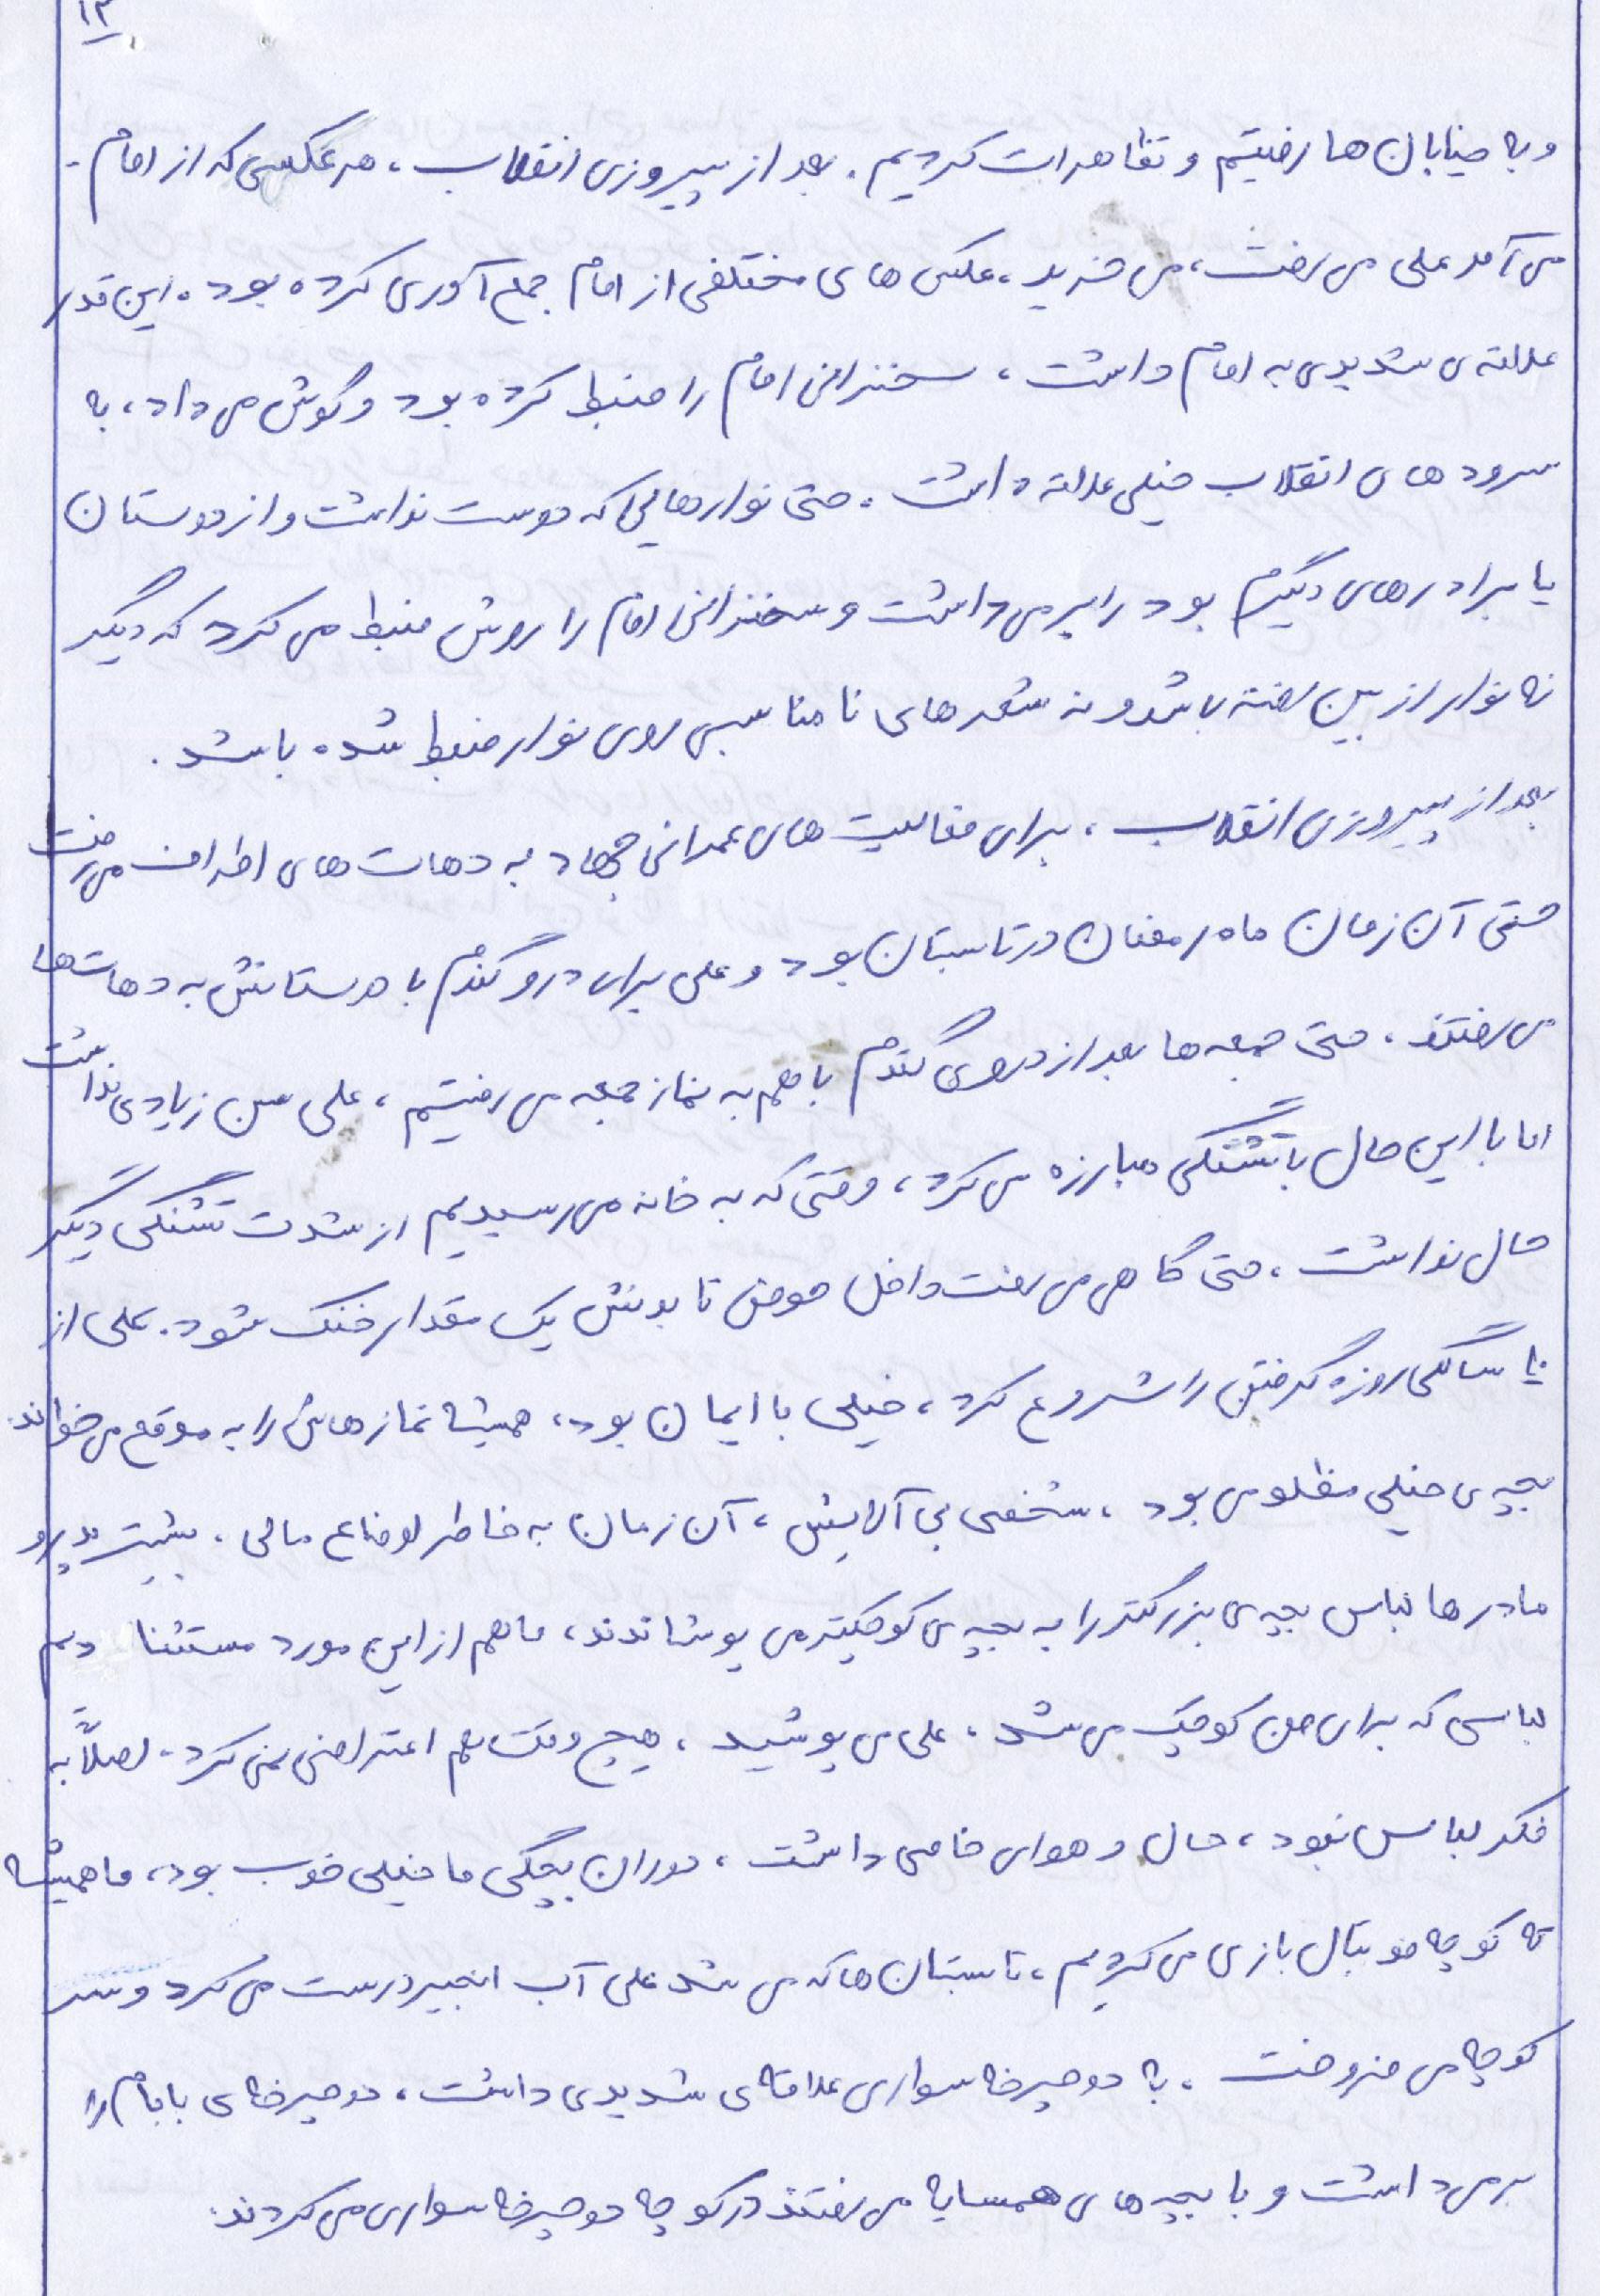 ۱۳
و به خیابان ها رفتیم و تظاهرات کردیم. بعد از پیروزی انقلاب، هر عکسی که از امام -
می آمد علی می رفت، می خرید، عکس های مختلفی از امام جمع آوری کرده بود. این قدر
علاقه ی شدیدی به امام داشت، سخنرانی امام را ضبط کرده بود و گوش می داد، به
سرودهای انقلاب خیلی علاقه داشت. حتی نوارهایی که دوست نداشت و از دوستان
یا برادرهای دیگرم بود را بر می داشت و سخنرانی امام را روش ضبط می کرد که دیگر
نه نوار از بین رفته باشد و نه شعرهای نامناسبی روی نوار ضبط شده باشد.
بعد از پیروزی انقلاب، برای فعالیت های عمرانی جهاد به دهات های اطراف می رفت
حتی آن زمان ماه رمضان در تابستان بود و علی برای درو گندم با دوستانش به دهات ها
می رفتند. حتی جمعه ها بعد از دروی گندم با هم به نماز جمعه می رفتیم، علی سن زیادی نداشت
اما با این حال با تشنگی مبارزه می کرد، وقتی که به خانه می رسیدیم از شدت تشنگی دیگر
حال نداشت، حتی گاهی می رفت داخل حوض تا بدنش یک مقدار خنک شود. علی از
سالگی روزه گرفتن را شروع کرد، خیلی با ایمان بود، همیشه نمازهایش را به موقع می خواند.
بچه ی خیلی مظلومی بود، شخصی بی آلایش، آن زمان به خاطر اوضاع مالی، بیشتر پدر و
مادرها لباس بچه ی بزرگتر را به بچه ی کوچکتر می پوشاندند، ما هم از این مورد مستثنا دیم
لباسی که برای من کوچک می شد، علی می پوشید، هیچ وقت هم اعتراضی نمی کرد. اصلاً به
فکر لباس نبود، حال و هوای خاصی داشت، دوران بچگی ما خیلی خوب بود، ما همیشه
ته کوچه فوتبال بازی می کردیم، تابستان ها که می شد علی آب انجیر درست می کرد و سر
کوچه می فروخت. به دوچرخه سواری علاقه ی شدیدی داشت، دوچرخه ی بابام را
بر می داشت و با بچه های همسایه می رفتند در کوچه دوچرخه سواری می کردند.